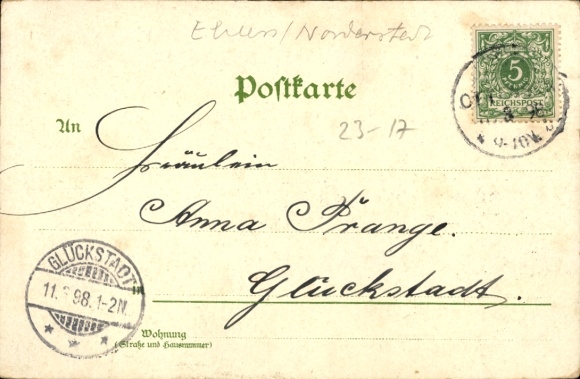 Ehlers/Norderstedt
Postkarte
5
REICHSPOST
An
23-17
9-10V.
Fräulein
Anna Prange.
Glückstadt.
GLÜCKSTADT
11. 98.1-2N.
Wohnung
(Straße und Hausnummer)